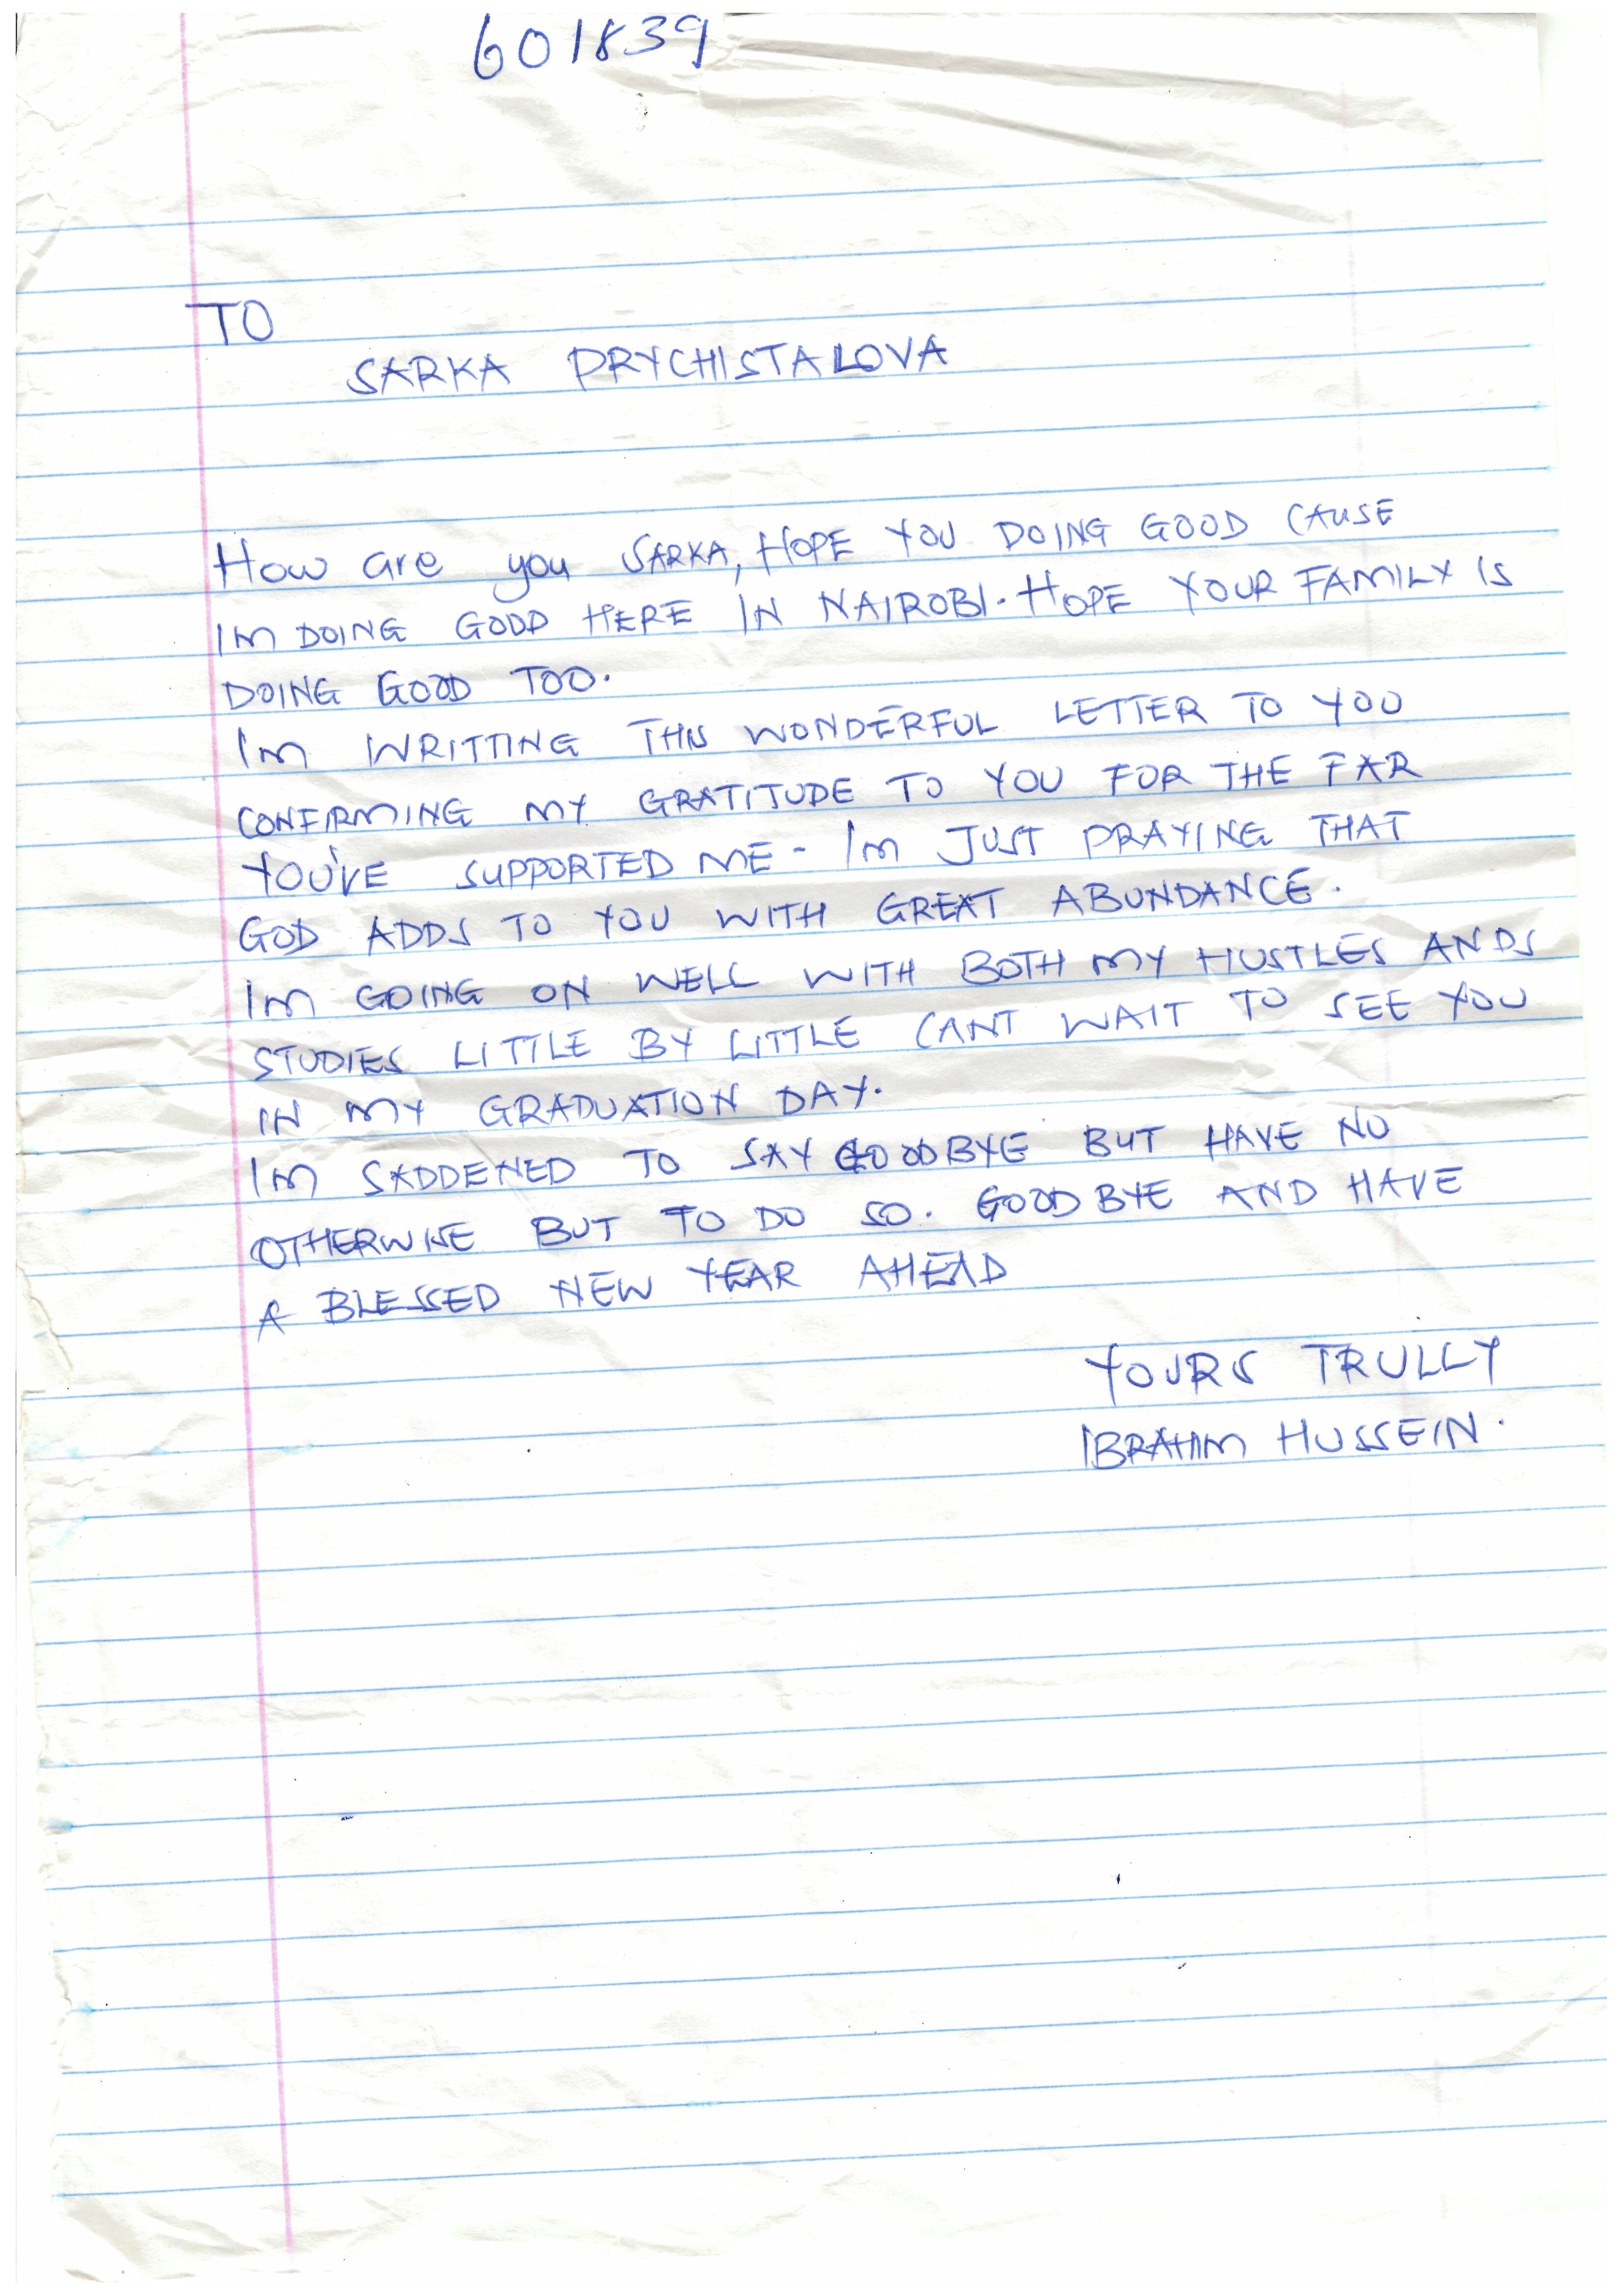 601839
TO
SARKA PRYCHISTALOVA
How are you SARKA, HOPE YOU DOING GOOD CAUSE
IM DOING GOOD HERE IN NAIROBI. HOPE YOUR FAMILY IS
DOING GOOD TOO.
I'M WRITTING THIS WONDERFUL LETTER TO YOU
CONFIRMING MY GRATITUDE TO YOU FOR THE FAR
YOU'VE SUPPORTED ME - I'M JUST PRAYING THAT
GOD ADDS TO YOU WITH GREAT ABUNDANCE.
IM GOING ON WELL WITH BOTH MY HUSTLES ANDS
STUDIES LITTLE BY LITTLE CANT WAIT TO SEE YOU
IN MY GRADUATION DAY.
IM SADDENED TO SAY GOODBYE BUT HAVE NO
OTHERWISE BUT TO DO SO. GOOD BYE AND HAVE
A BLESSED NEW YEAR AHEAD
YOURS TRULLY
IBRAHIM HUSSEIN.